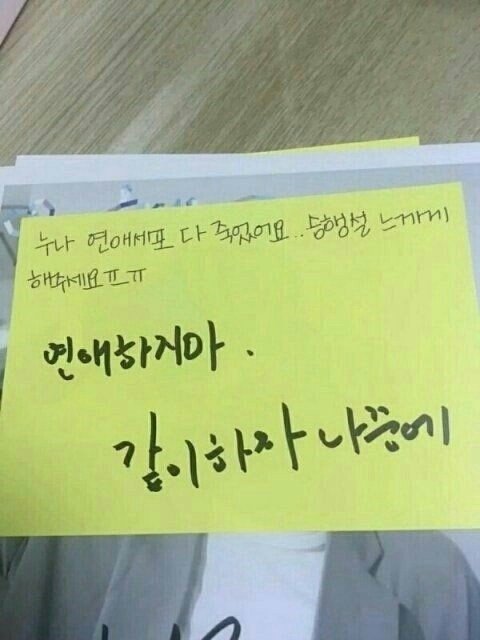 누나 연애세포 다 죽었어요.. 승행설 느끼게
해주세요ㅠㅠ
연애하지마.
같이하자 나중에